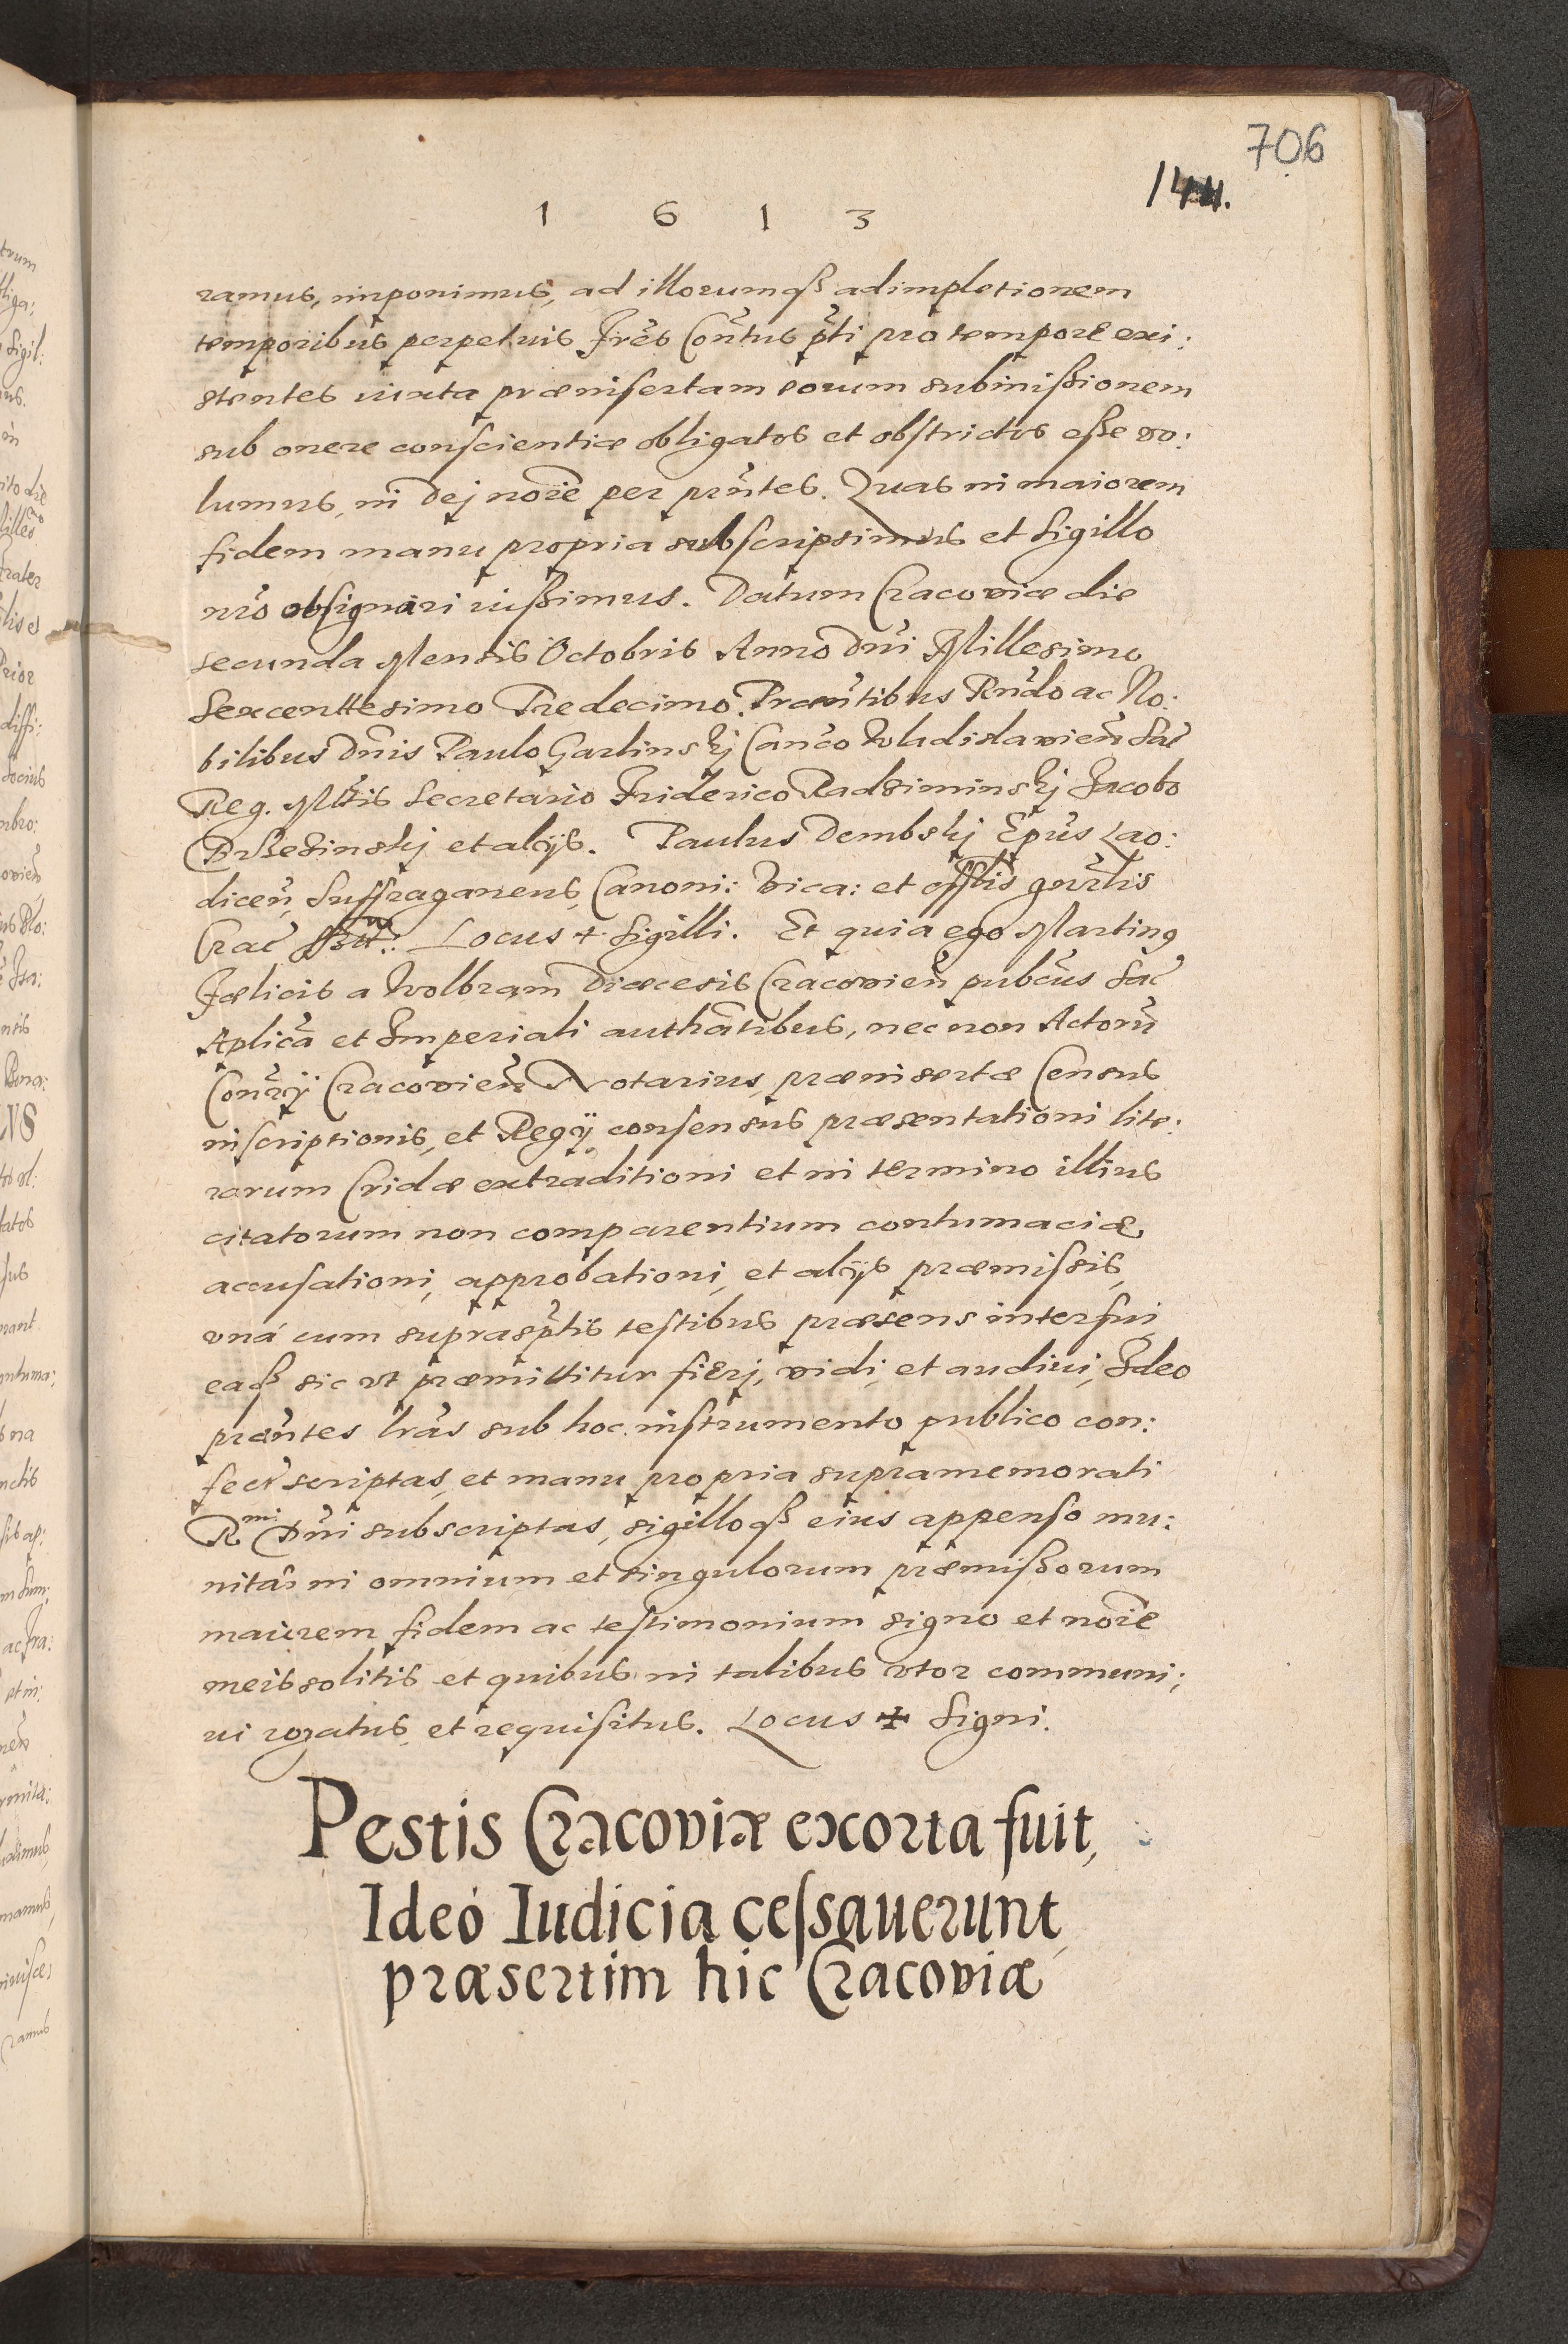 706
144.
1 6 1 3
ramus, imponimus, ad illorumqß adimpletionem
temporibus perpetuis fres Contus pti pro tempore exi:
stentes iuxta præinsertam eorum submißionem
sub onere conscientiæ obligatos et obstrictos eße vo:
lumus, in Dej noie per pntes. Quas in maiorem
fidem manu propria subscripsimus et Sigillo
nro obsignari iußimus. Datum Cracoviæ die
secunda Mensis Octobris Anno Dni Millesimo
Sexcenttesimo Tredecimo. Præntibus Rndo ac No:
bilibus Dnis Paulo Garlinskj Canco Wladislavien Sac
Reg. Mttis Secretario Friderico Radziminskj Jacobo
Brzezinskj et alijs. Paulus Dembskj Epus Lao:
dicen, Suffraganeus, Canoni: Vica: et offlis gnrlis
Crac Locus + Sigilli. Et quia ego Martinus
Fœlicis a Wolbram Diœcesis Cracovien pubcus Sac
Aplica et Imperiali authatibus, nec non Actorũ
Conrij Cracovien Notarius, præinsertæ Census
inscriptionis, et Regij consensus præsentationi lite:
rarum Cridæ extraditioni et in termino illius
citatorum non comparentium contumaciæ
accusationi, approbationi, et alijs præmissis,
vná cum suprasptis testibus præsens interfui
eaqß sic vt præmittitur fierj, vidi, et audivi, Ideo
præntes lras sub hoc instrumento publico con:
feci scriptas, et manu propria supramemorati
Rmi Dni subscriptas, sigilloqß eius appenso mu:
nitas in omnium et singulorum præmißorum
maiorem fidem ac testimonium signo et noie
meis solitis et quibus in talibus vtor communi;
ui rogatus et requisitus. Locus + Signi.
Pestis Cracoviæ exorta fuit,
Ideó Iudicia cessauerunt
præsertim hic Cracoviæ